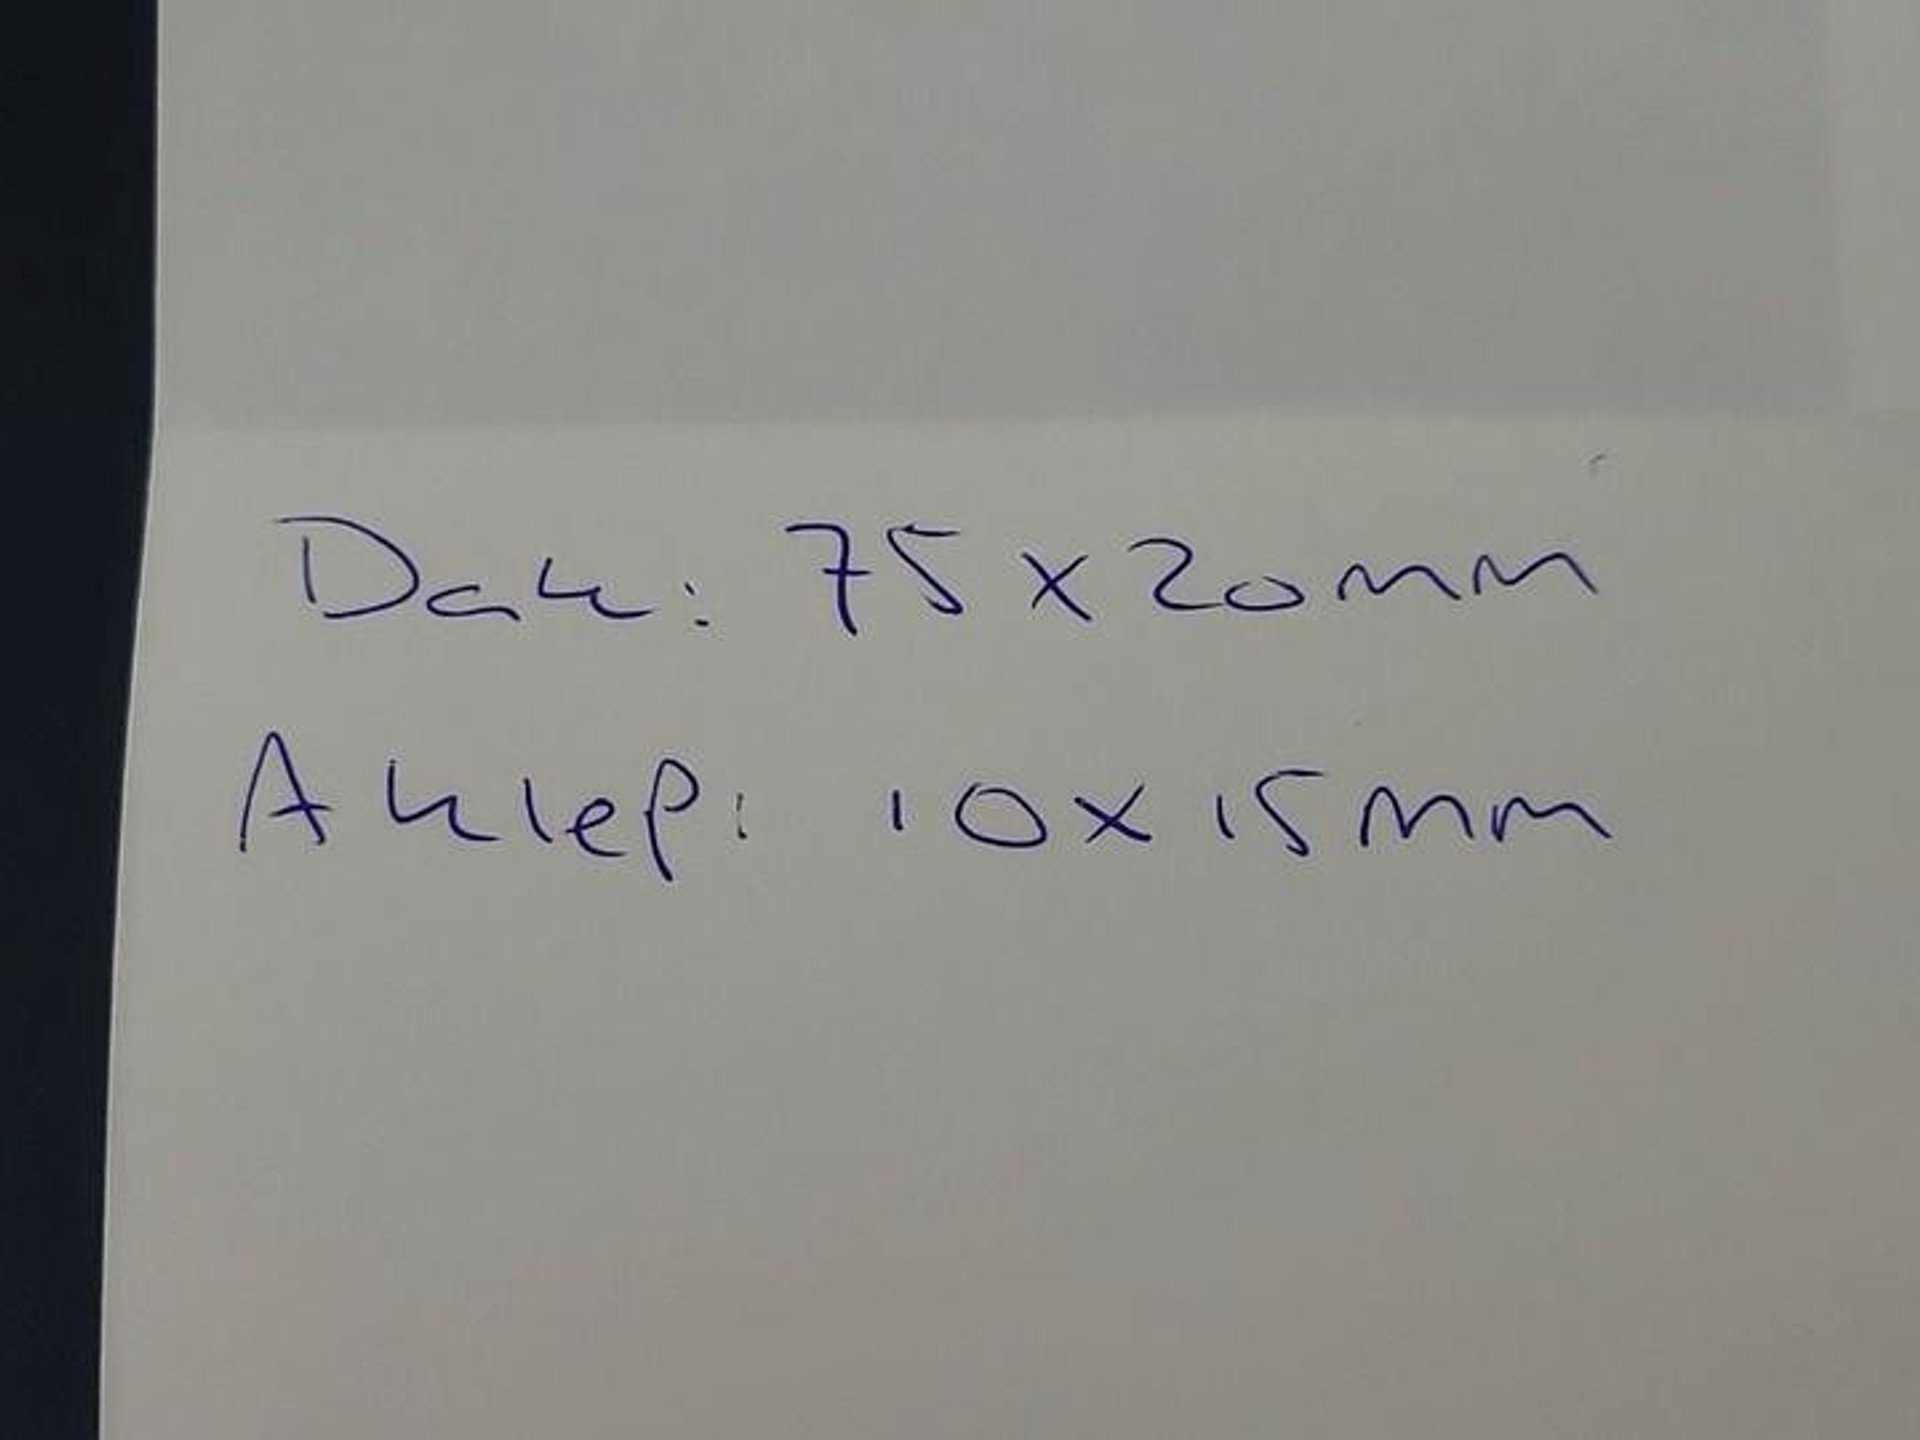 Dak: 75x20mm
Aklep: 10x15mm